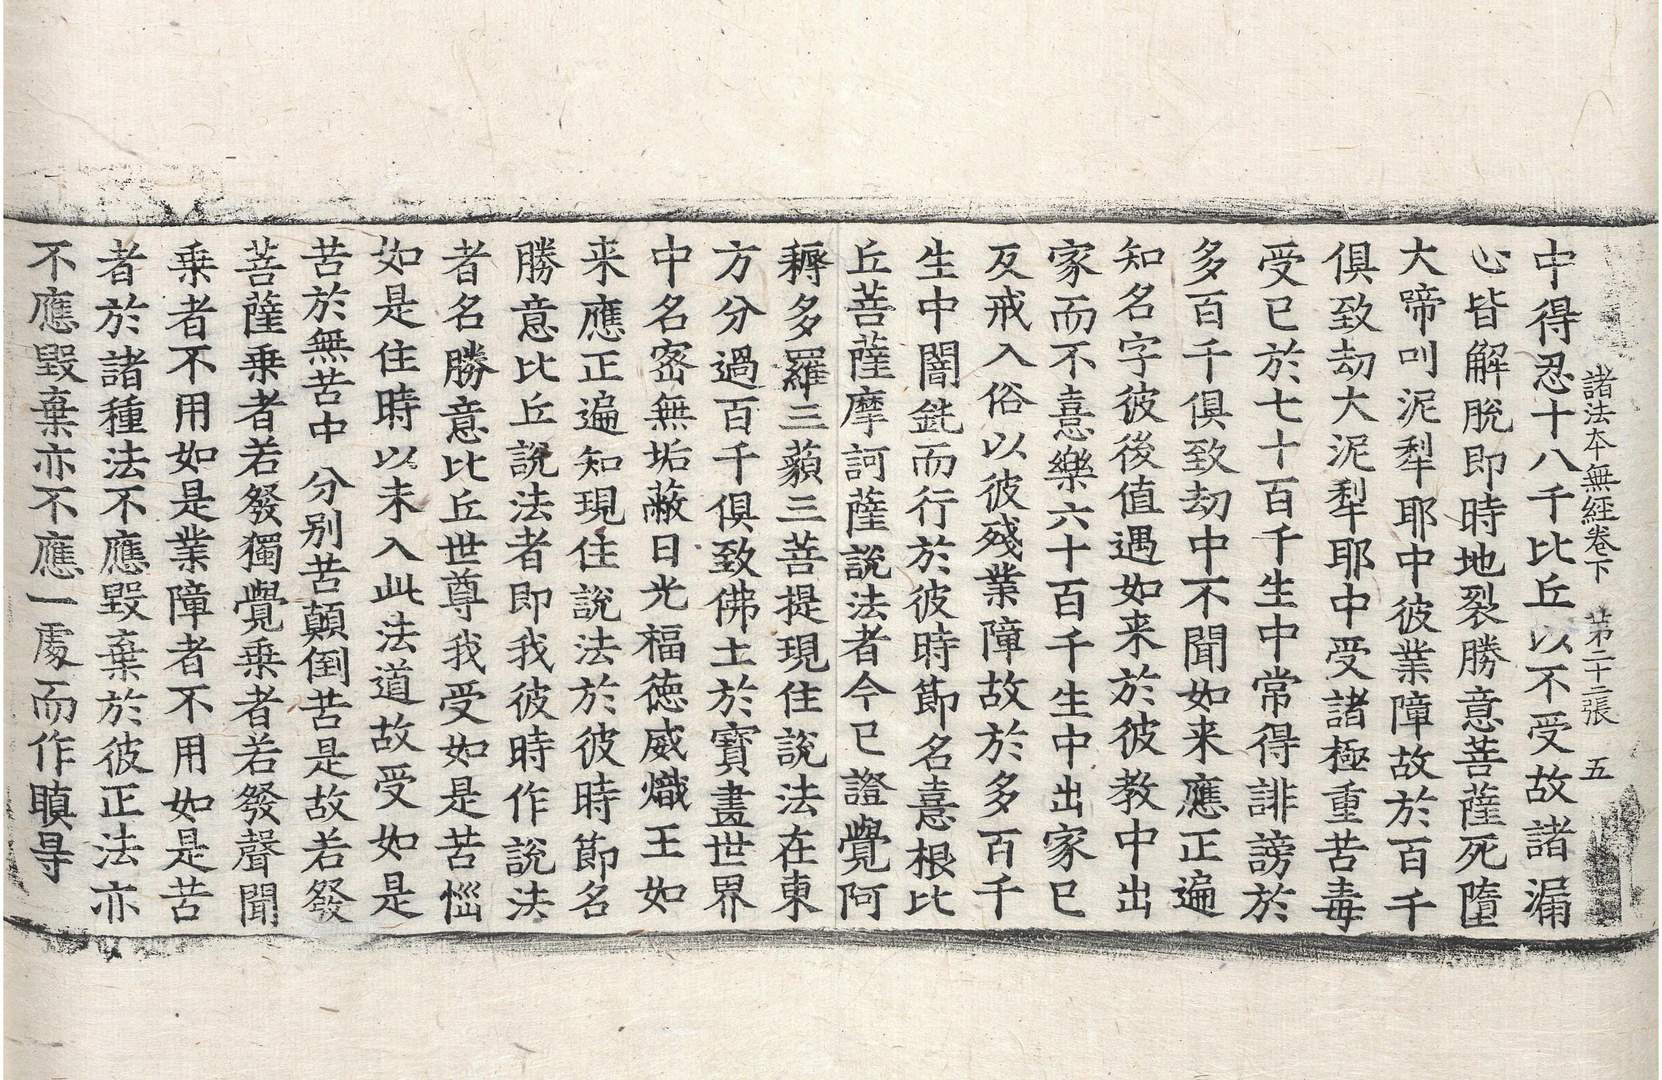 諸法本無經卷下　第二十二張　五
中得忍十八千比丘以不受故諸漏
心皆解脫即時地裂勝意菩薩死墮
大啼叫泥犁耶中彼業障故於百千
俱致劫大泥犁耶中受諸極重苦毒
受已於七十百千生中常得誹謗於
多百千俱致劫中不聞如来應正遍
知名字彼後值遇如来於彼教中出
家而不憙樂六十百千生中出家已
反戒入俗以彼殘業障故於多百千
生中闇鈍而行於彼時節名憙根比
丘菩薩摩訶薩說法者今已證覺阿
耨多羅三藐三菩提現住說法在東
方分過百千俱致佛土於寶畫世界
中名宻無垢蔽日光福徳威熾王如
来應正遍知現住說法於彼時節名
勝意比丘說法者即我彼時作說法
者名勝意比丘世尊我受如是苦惱
如是住時以未入此法道故受如是
苦於無苦中分別苦顛倒苦是故若發
菩薩乗者若發獨覺乗者若發聲聞
乗者不用如是業障者不用如是苦
者於諸種法不應毀棄於彼正法亦
不應毀棄亦不應一處而作瞋㝵